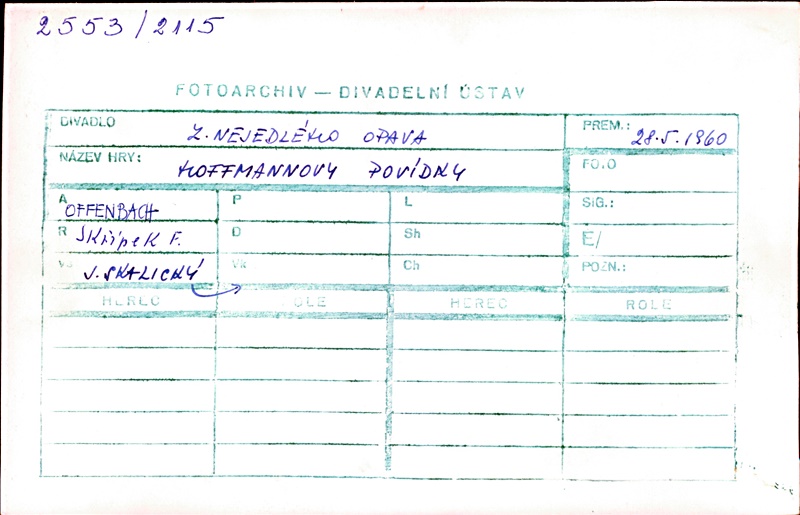 2553/2115
FOTOARCHIV — DIVADELNÍ ÚSTAV
DIVADLO Z. NEJEDLÉHO OPAVA PREM.: 28.5.1960
NÁZEV HRY: HOFFMANNOVY POVÍDKY FOTO
A OFFENBACH P L SIG.:
R SKŘÍPEK F. D Sh E/
J. SKALICKÝ Vk Ch POZN.:
HEREC ROLE HEREC ROLE